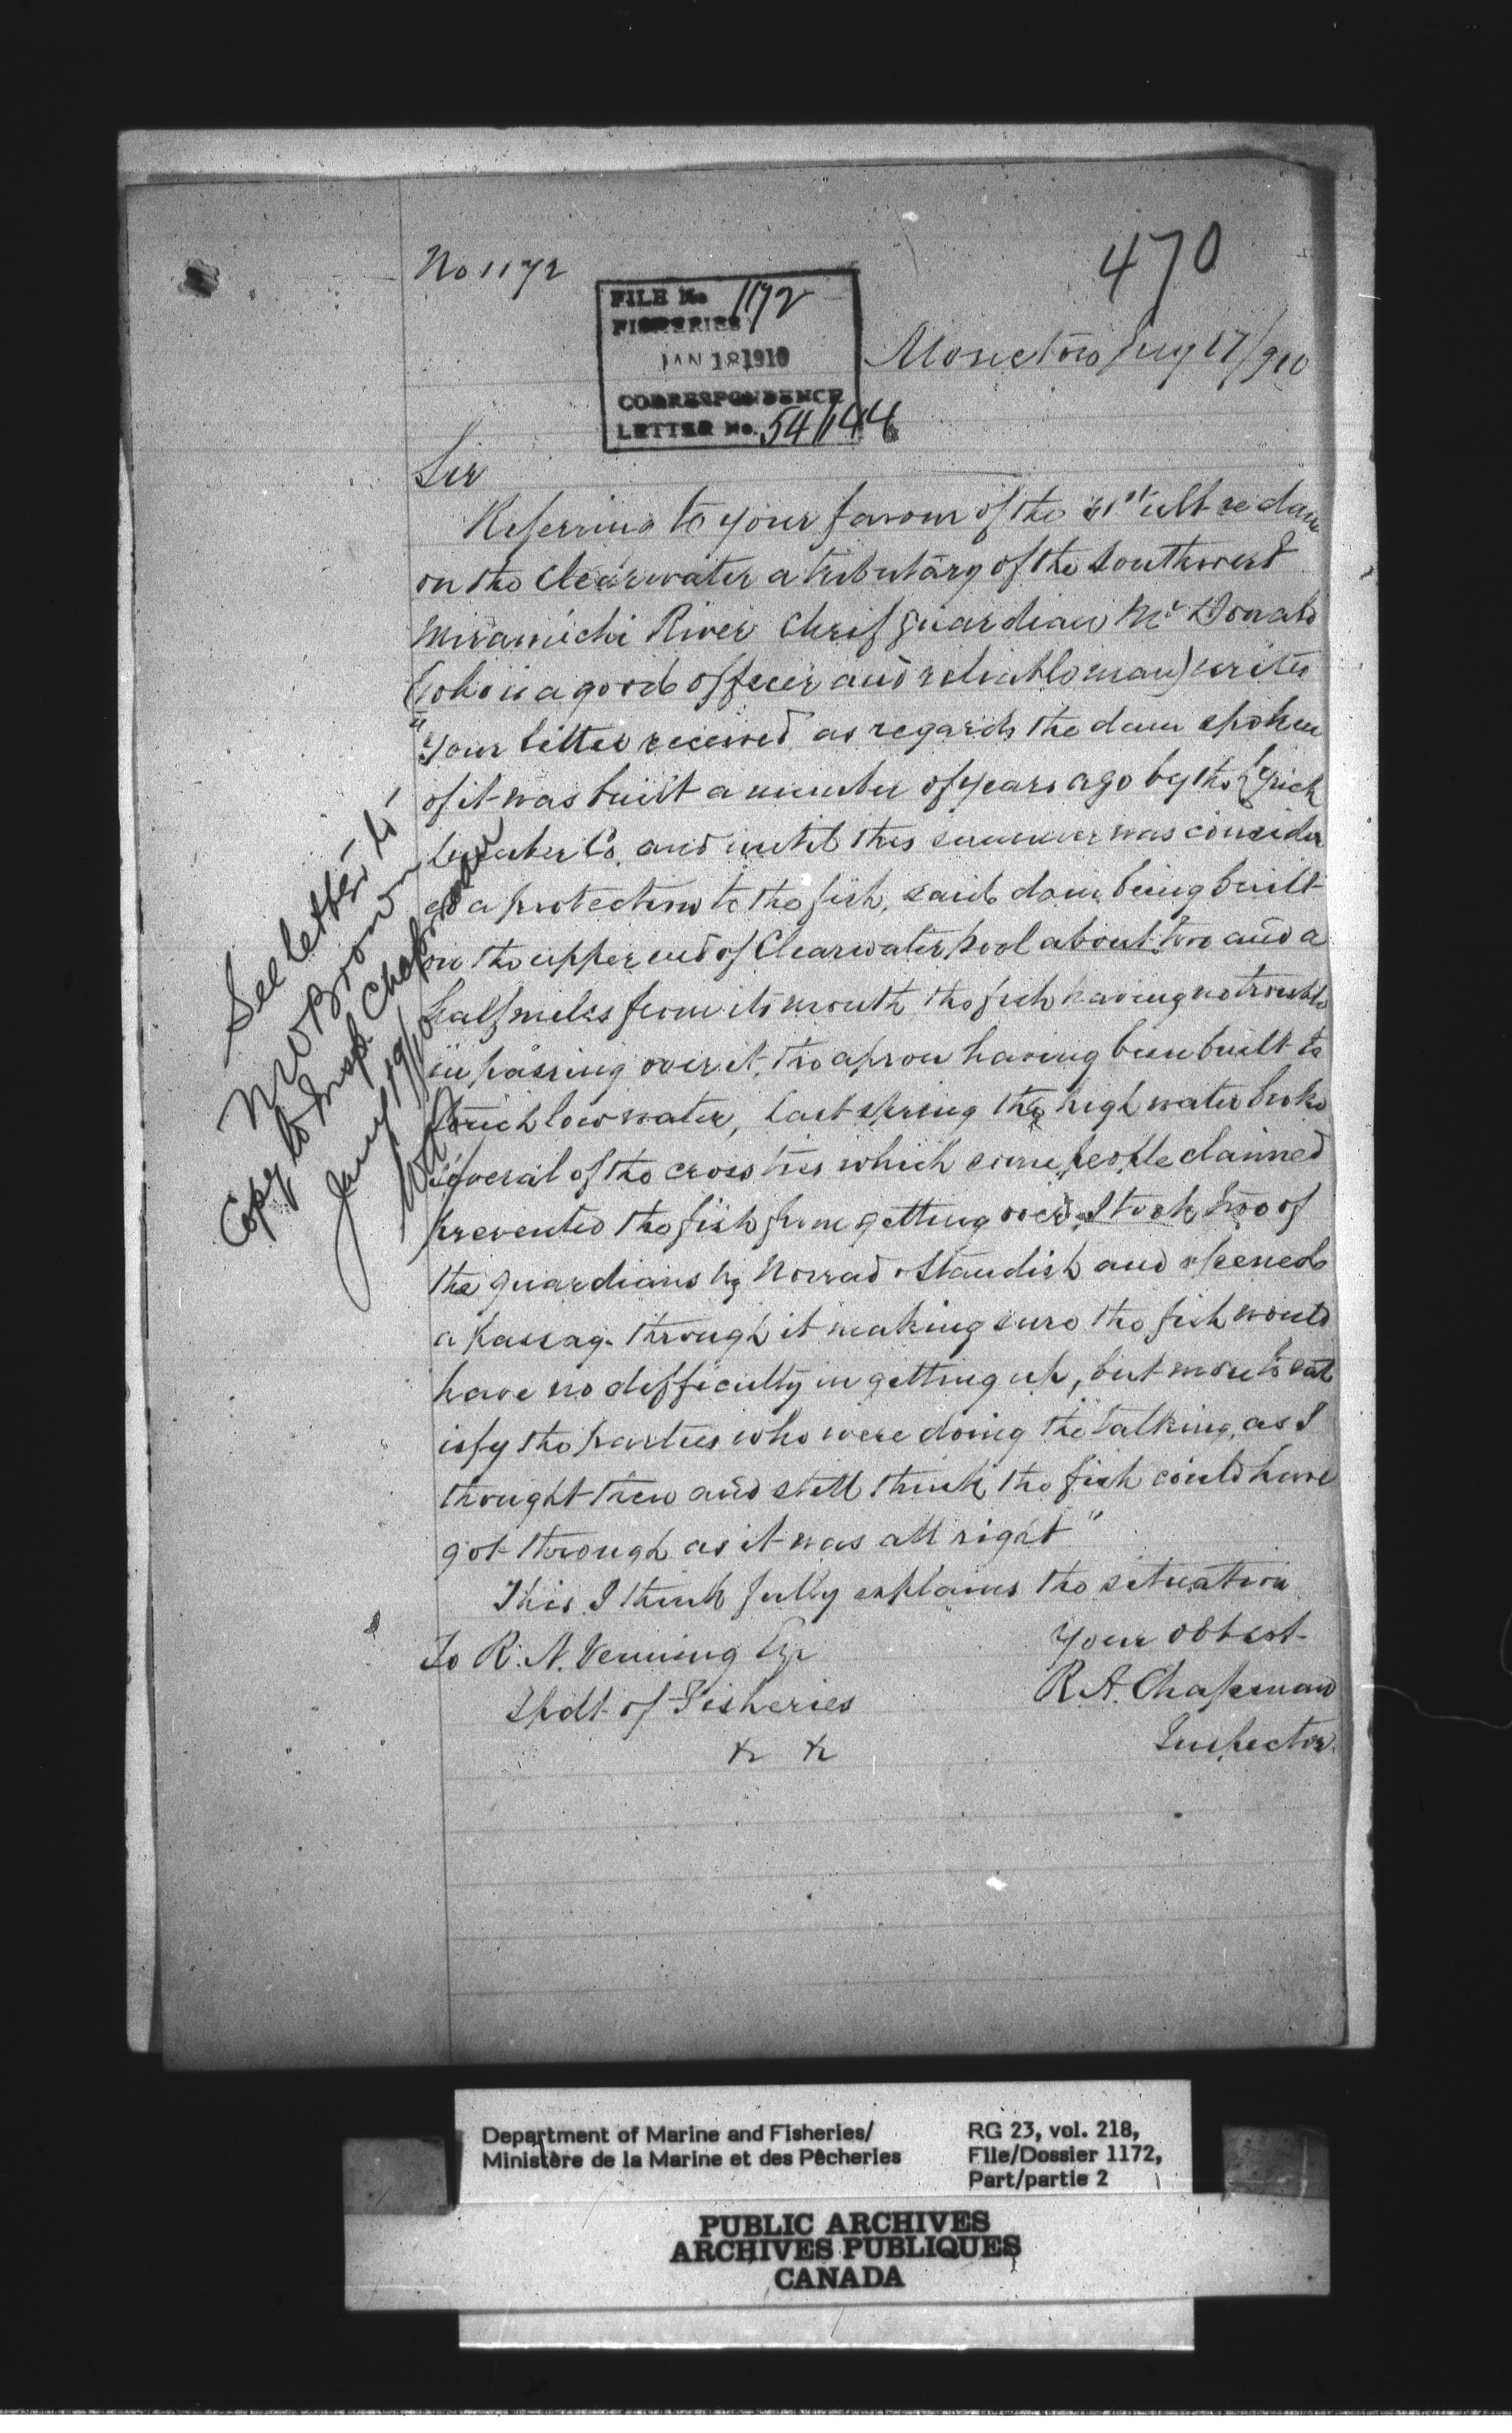 No 1172
470
FILE No 1172
FISHERIES
JAN 18 1910
CORRESPONDENCE
LETTER No. 54144
Moncton Jany 17/910
Sir
Referring to your favour of the 31st ult re dam
on the Clearwater a tributary of the Southwest
Miramichi River Chief guardian McDonald
(who is a good officer and reliable man) writes
"Your letter received as regards the dam spoken
of it was built a number of years ago by the
Lumber Co. and until this summer was consider
ed a protection to the fish, said dam being built
on the upper end of Clearwater pool about two and a
half miles from its mouth, the fish having no trouble
in passing over it, the apron having been built to
low water, last spring the high water broke
several of the cross ties which some people claimed
prevented the fish from getting over. I took two of
the guardians Norrad & Standish and opened
a passage through it making sure the fish would
have no difficulty in getting up, but more to sat
isfy the parties who were doing the talking, as I
thought then and still think the fish could have
got through as it was all right"
This I think fully explains the situation
To R. N. Venning Esqr
Your obt sst
Spdt of Fisheries
R. A. Chapman
&c &c
Inspector.
See letter to
Brown
Copy to Insp. Chapman
Jany 19/10
Department of Marine and Fisheries/
Ministère de la Marine et des Pêcheries
RG 23, vol. 218,
File/Dossier 1172,
Part/partie 2
PUBLIC ARCHIVES
ARCHIVES PUBLIQUES
CANADA